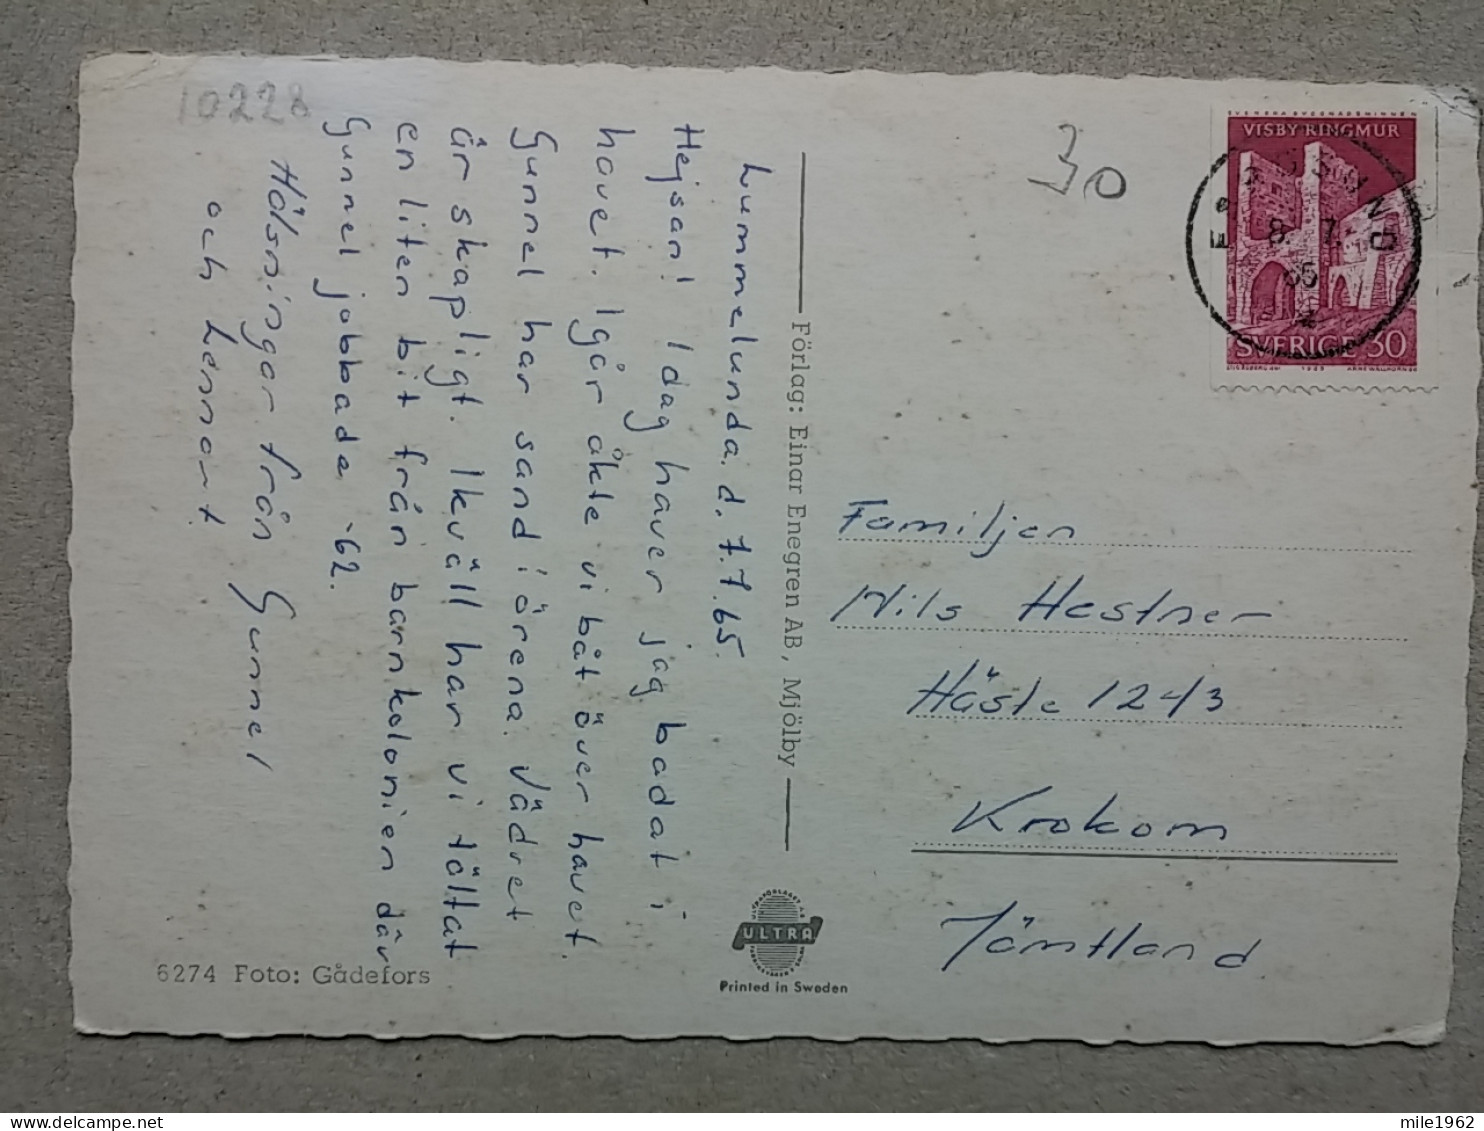 10228
Lummelunda. d. 7.7.65.
Hejsan! Idag haver jag badat i
havet. Igår åkte vi båt över havet.
Gunnel har sand i örena. Vädret
är skapligt. Ikväll har vi tältat
en liten bit från barnkolonien där
Gunnel jobbade -62.
Hälsningar från Gunnel
och Lennart.
6274 Foto: Gådefors
Förlag: Einar Enegren AB, Mjölby
ULTRA
Printed in Sweden
30
VISBY RINGMUR
SVERIGE 30
8. 7.
65
Familjen
Nils Hestner
Häste 1243
Krokom
Jämtland
mile1962